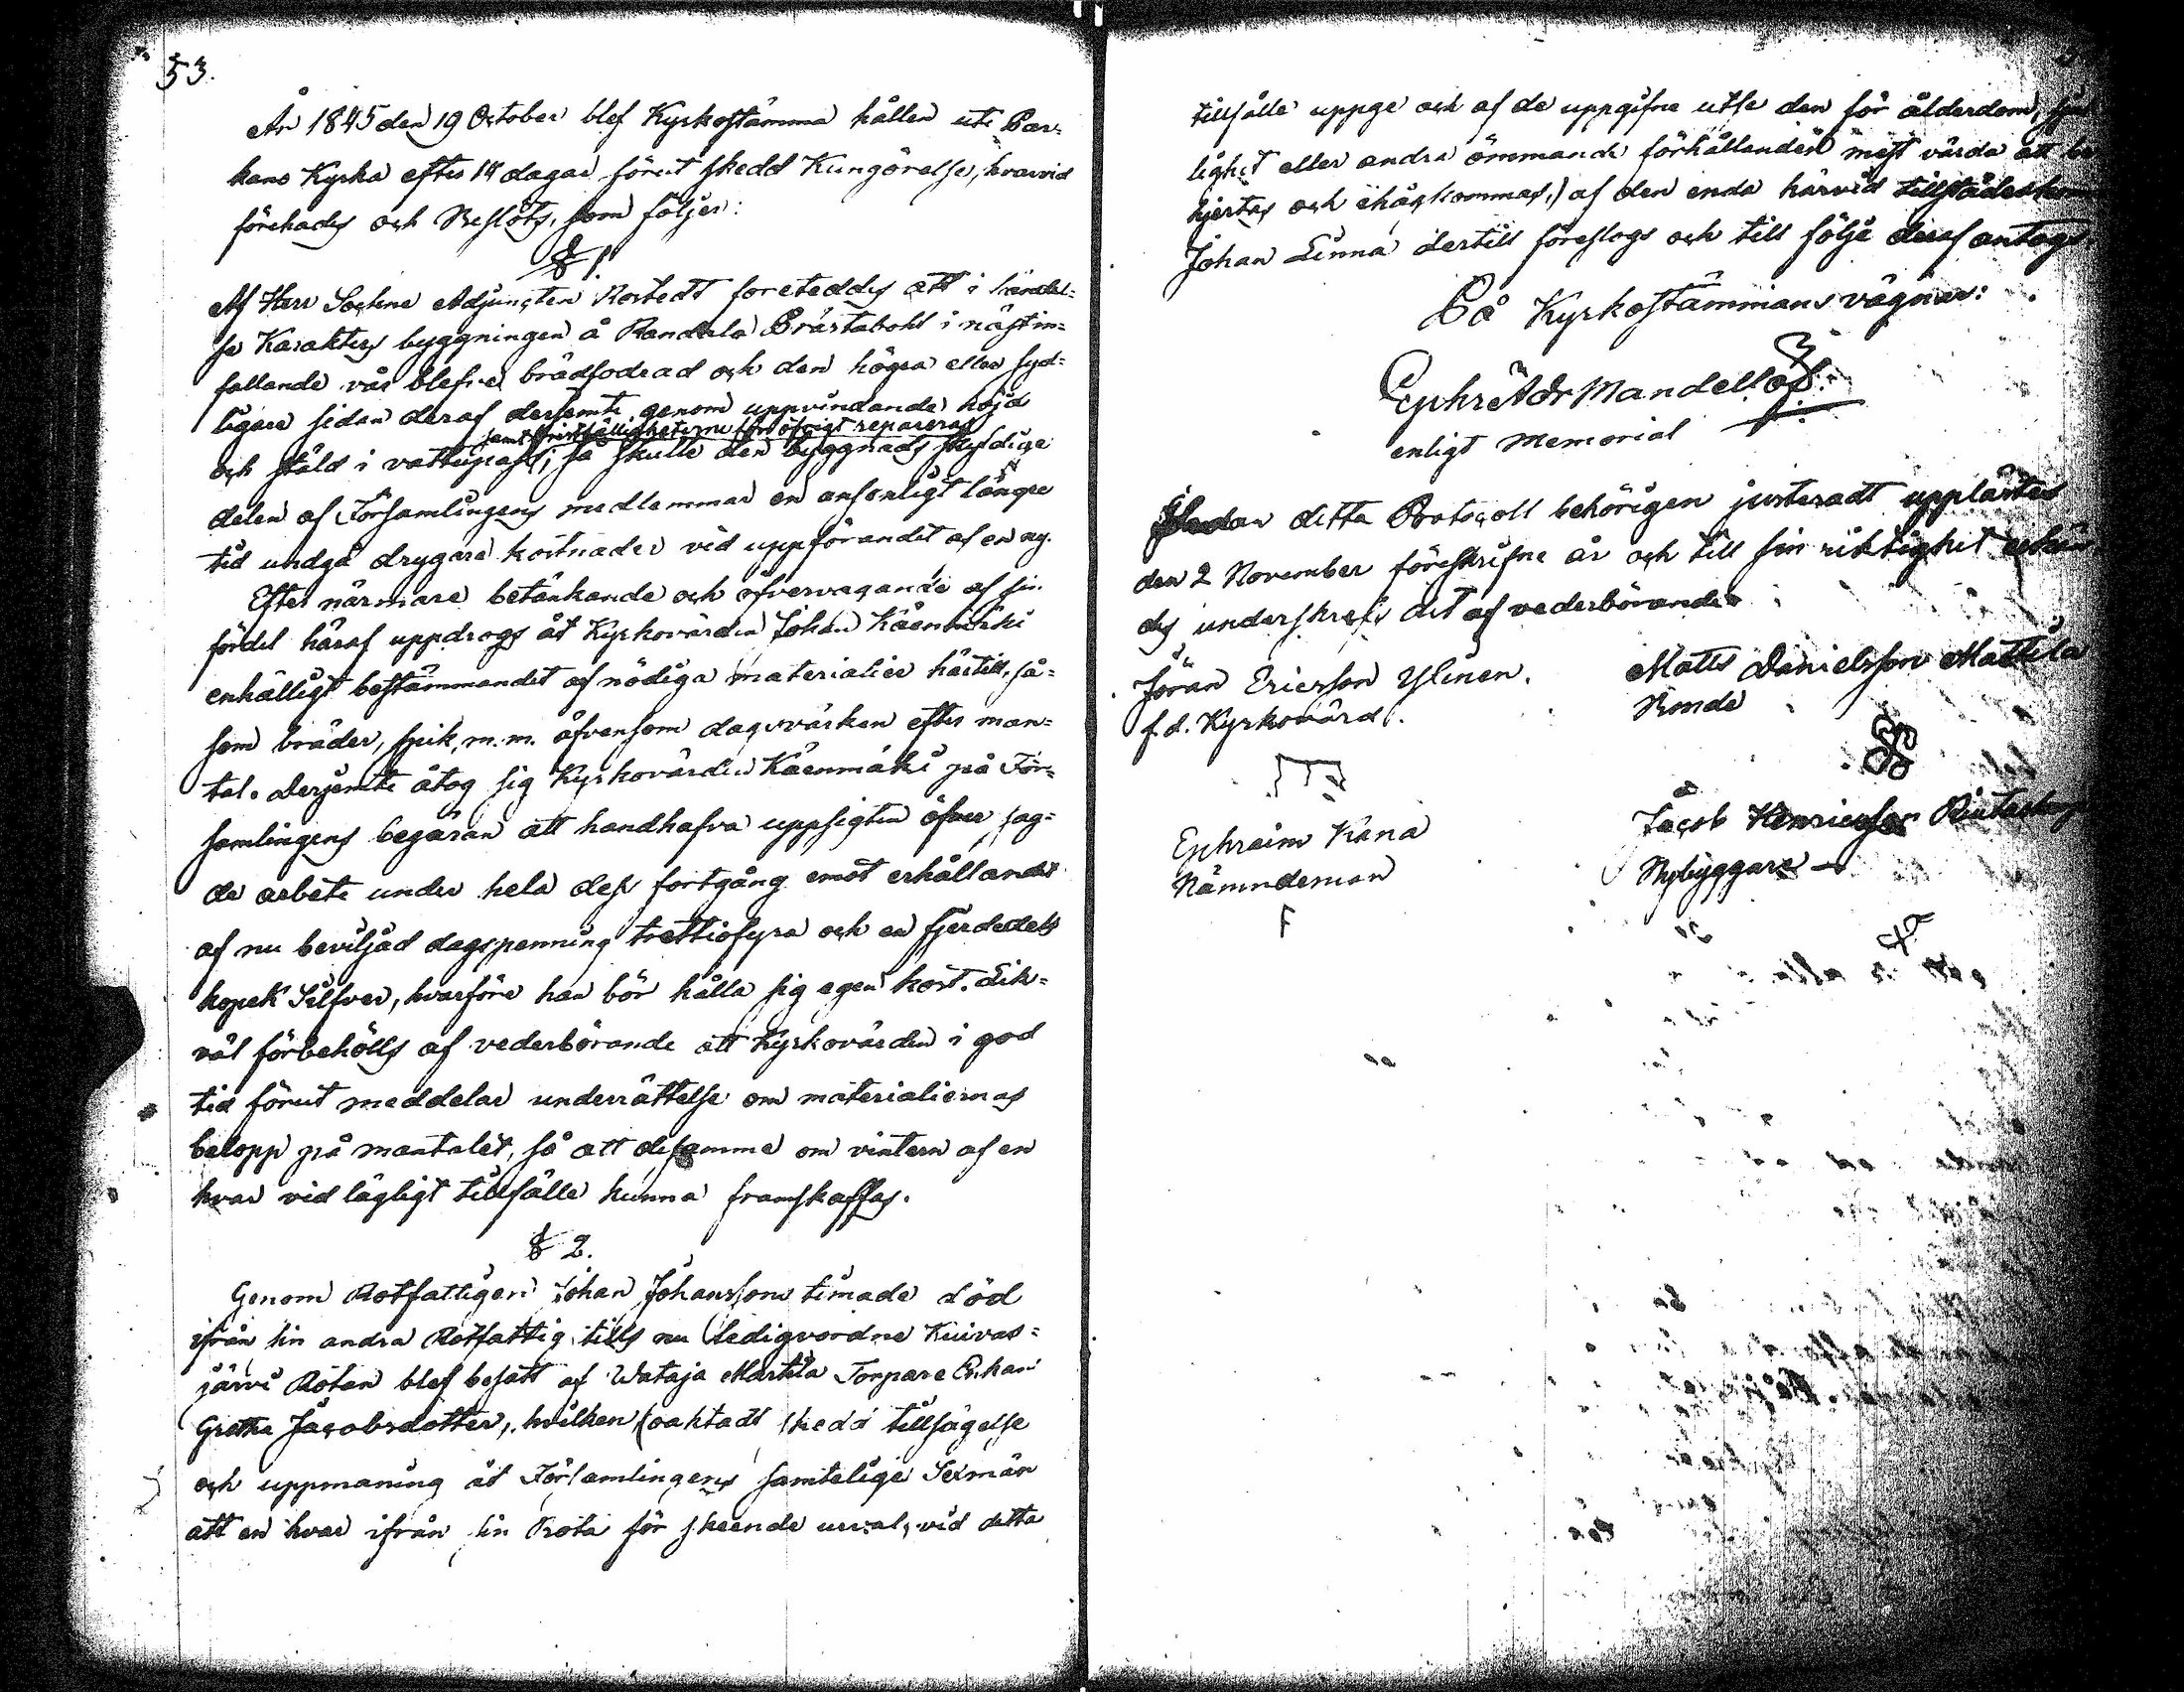 53.
År 1845 den 19 October blef Kyrkostämma hållen uti Par-
kano Kyrka efter 14 dagar förut skedd Kungörelse, hvarvid
förehades och Beslöts, som följer:
§ 1.
Af Herr Sockne Adjuncten Rostedt företeddes att i händel-
se Karakters byggningen å Prästabohl i nästin-
fallande vår blefve brädfodrad och den högra eller syd-
ligare sidan deraf derjemte genom uppvindande höjd
samt bristfälligheterne för öfrigt repareras
och stäld i vattupass; så skulle den byggnads skyldige
delen af Församlingens medlemmar en ansenligt längre
tid undgå drygare kostnader vid uppförandet af en ny.
Efter närmare betänkande och öfvervägande af sin
fördel häraf uppdrogs åt Kyrkovärden Johan Käenmäki
enhälligt bestämmandet af nödiga materialier härtill, så-
som bräder, spik, m.m. äfvensom dagsverken efter man-
tal. Derjemte åtog sig Kyrkovärden Käenmäki på För-
samlingens begäran att handhafva uppsigten öfver sag-
de arbete under hela dess fortgång emot erhållande
af nu beviljad dagspenning trettiofyra och en fjerdedels
kopek Silfver, hvarföre han bör hålla sig egen kost. Lik-
väl förbehölls af vederbörande att Kyrkovärden i god
tid förut meddelar underrättelse om materialiernas
belopp på mantalet, så att desamme om vintern af en
hvar vid lägligt tillfälle kunna framskaffas.
§ 2.
Genom Rotfattigen Johan Johanssons timade död
ifrån sin andra Rotfattig tills nu ledigvordne Kuivas-
järvi Rotan blef besatt af Wataja Marttila Torpare Enkan
Gretha Jacobsdotter, hvilken, (oaktadt skedd tillsägelse
och uppmaning åt Församlingens samtelige Sexmän
att en hvar ifrån sin Rota för skeende urval, vid detta
tillfälle uppge och af de uppgifne utse den för ålderdom,
lighet eller andra ömmande förhållanden mest värda att
hjertas och ihågkommas,) af den enda härvid tillstädeskom
Johan Linna dertill föreslogs och till följe deraf antogs
På Kyrkostämmans vägnar:
Ephr Adr Mandellöf
enligt Memorial
Sedan detta Protocoll behörigen justeradt upplästes
den 2 November föreskrifne år och till sin riktighet erkän
des underskrefs det af vederbörande
Jöran Ericsson Ylinen.
f.d. Kyrkovärd.
Matts Danielsson Mattila
Bonde
Ephraim Kana
Nämndeman
Jacob Henricsson
Nybyggare